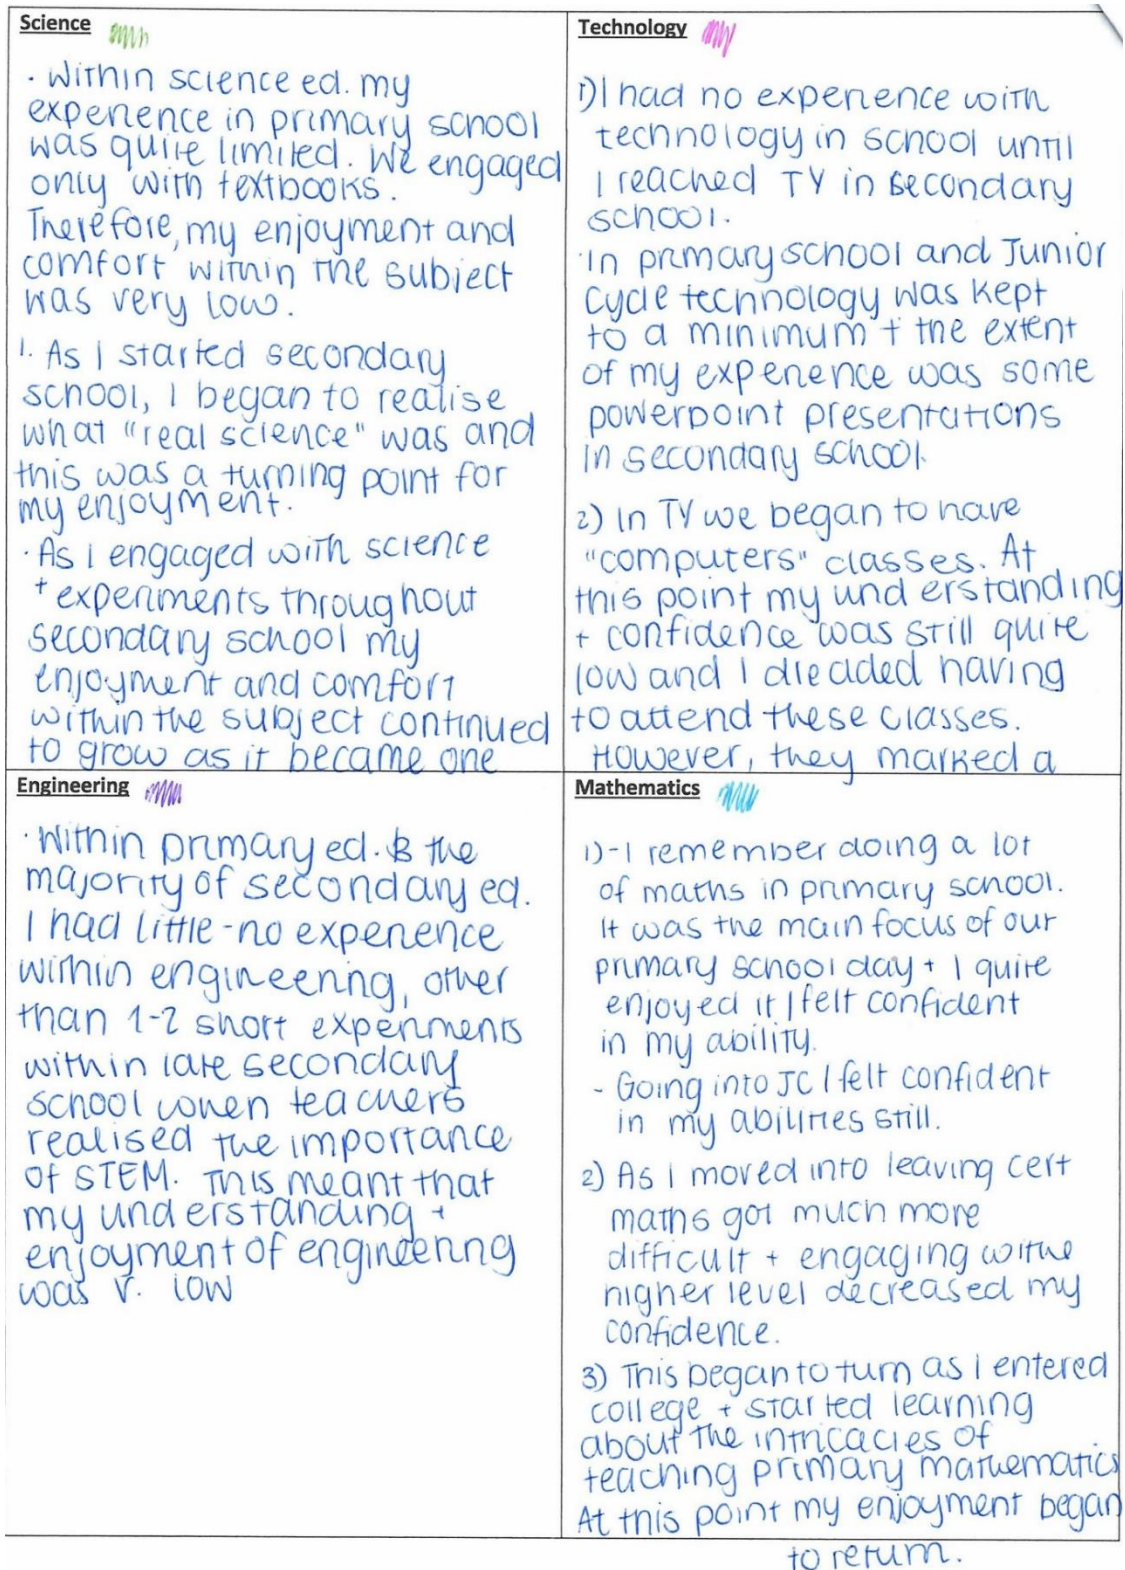 Science
· Within science ed. my
experience in primary school
was quite limited. We engaged
only with textbooks.
Therefore, my enjoyment and
comfort within the subject
was very low.
1. As I started secondary
school, I began to realise
what "real science" was and
this was a turning point for
my enjoyment.
· As I engaged with science
+ experiments throughout
secondary school my
enjoyment and comfort
within the subject continued
to grow as it became one
Technology
1) I had no experience with
technology in school until
I reached TY in secondary
school.
· In primary school and Junior
Cycle technology was kept
to a minimum + the extent
of my experience was some
powerpoint presentations
in secondary school.
2) In TY we began to have
"computers" classes. At
this point my understanding
+ confidence was still quite
low and I dreaded having
to attend these classes.
However, they marked a
Engineering
· Within primary ed. & the
majority of secondary ed.
I had little-no experience
within engineering, other
than 1-2 short experiments
within late secondary
school when teachers
realised the importance
of STEM. This meant that
my understanding +
enjoyment of engineering
was v. low
Mathematics
1) - I remember doing a lot
of maths in primary school.
It was the main focus of our
primary school day + I quite
enjoyed it / felt confident
in my ability.
- Going into JC I felt confident
in my abilities still.
2) As I moved into leaving cert
maths got much more
difficult + engaging withe
higher level decreased my
confidence.
3) This began to turn as I entered
college + started learning
about the intricacies of
teaching primary mathematics
At this point my enjoyment began
to return.